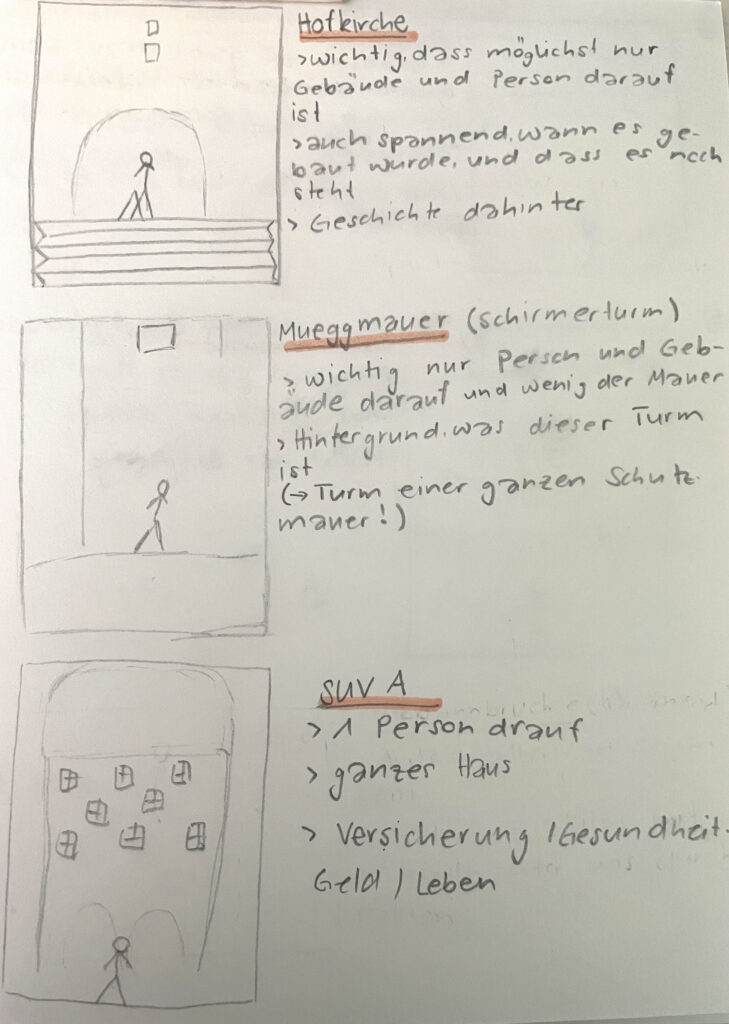 Hofkirche
>wichtig, dass möglichst nur
Gebäude und Person darauf
ist
>auch spannend, wann es ge-
baut wurde, und dass es noch
steht
> Geschichte dahinter
Mueggmauer (schirmerturm)
> wichtig nur Person und Geb-
äude darauf und wenig der Mauer
> Hintergrund, was dieser Turm
ist
(→ Turm einer ganzen Schutz-
mauer!)
SUVA
> 1 Person drauf
> ganzer Haus
> Versicherung /Gesundheit-
Geld / Leben